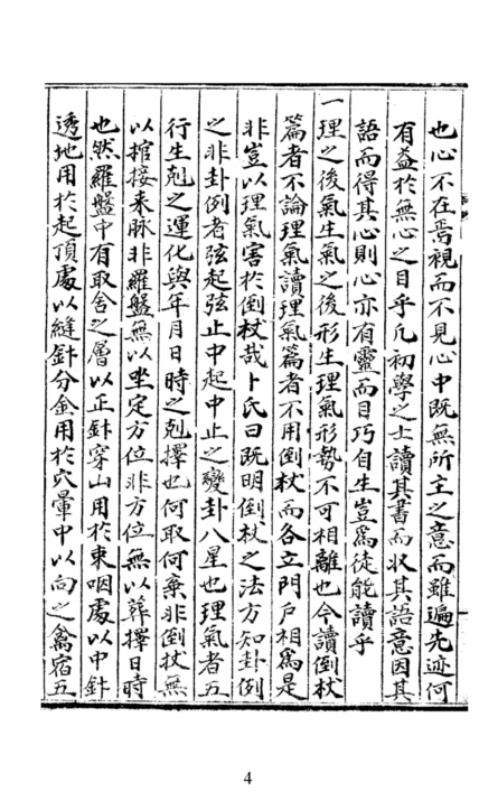 也心不在焉視而不見心中既無所主之意而雖遍先迹何
有益於無心之目乎凡初學之士讀其書而求其語意因其
語而得其心則心亦有靈而目巧自生豈爲徒能讀乎
一理之後氣生氣之後形生理氣形勢不可相離也今讀倒杖
篇者不論理氣讀理氣篇者不用倒杖而各立門戶相爲是
非豈以理氣害於倒杖哉卜氏曰既明倒杖之法方知卦例
之非卦例者弦起弦止中起中止之變卦八星也理氣者五
行生剋之運化與年月日時之剋擇也何取何棄非倒杖無
以棺接來脉非羅盤無以坐定方位非方位無以葬擇日時
也然羅盤中有取舍之層以正針穿山用於束咽處以中針
透地用於起頂處以縫針分金用於穴暈中以向之禽宿五
4